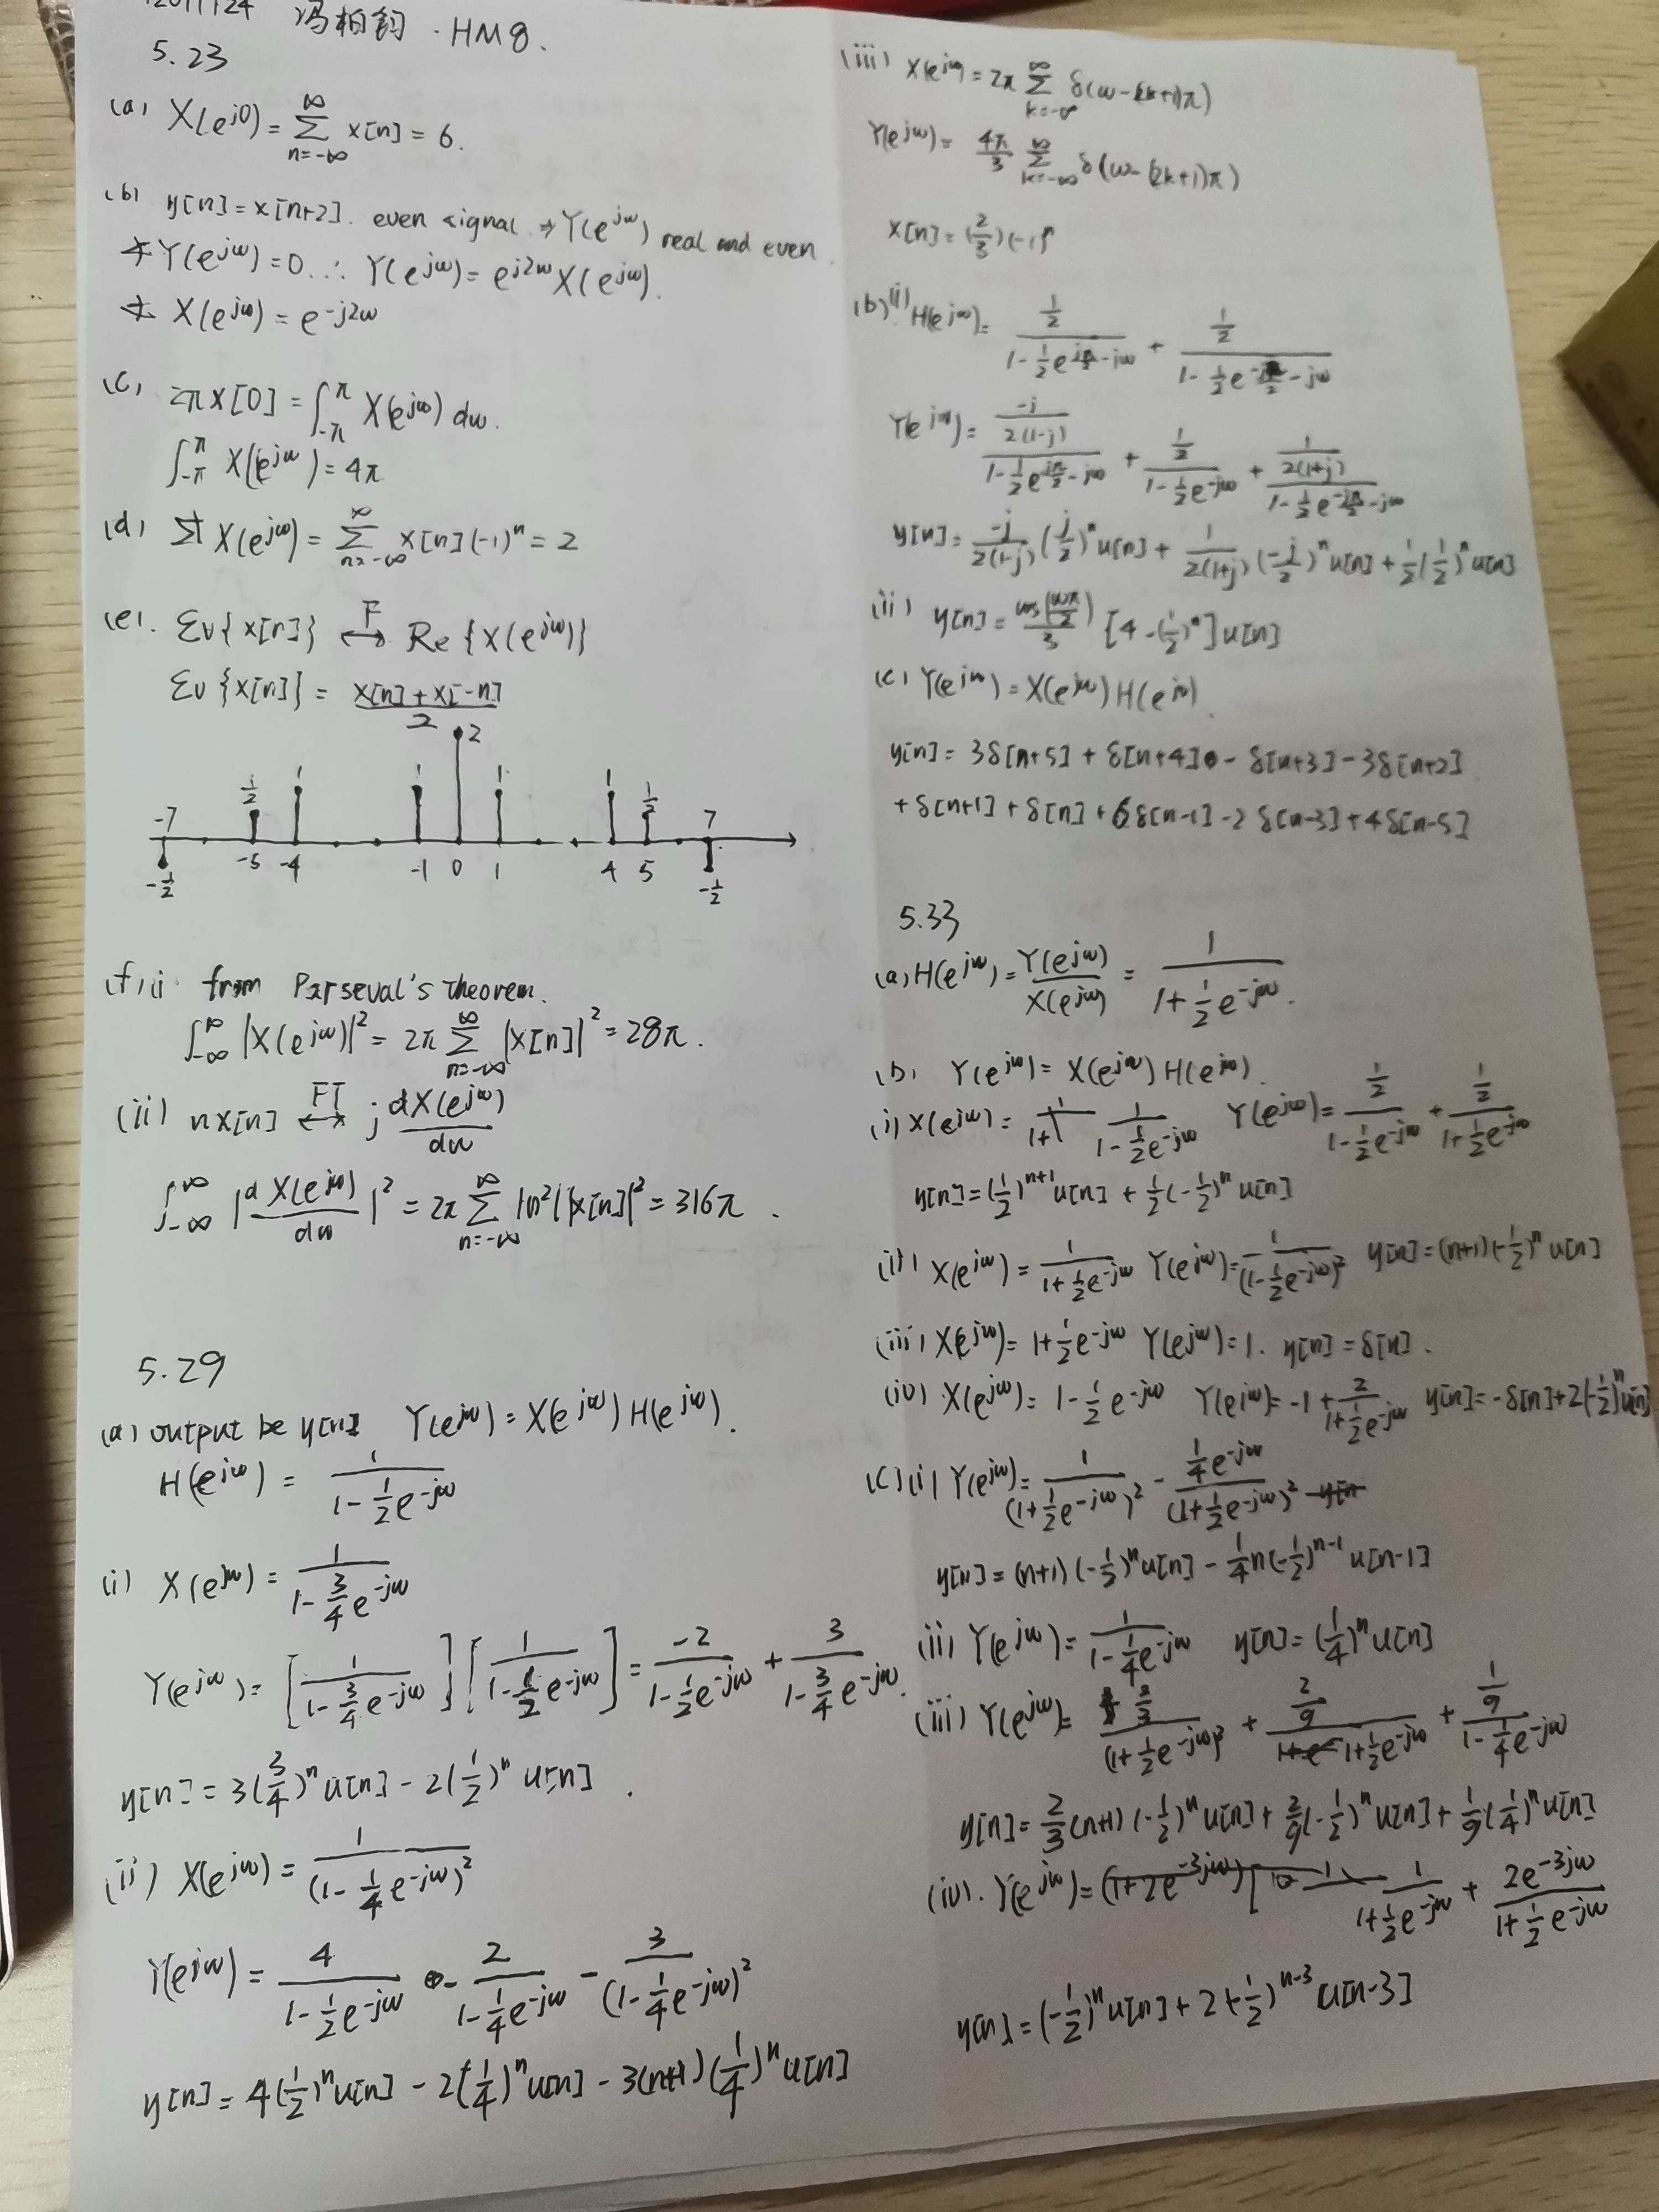 冯柏钧 . HM8.
5.23
(a) X(e^{j0}) = \sum_{n=-∞}^{∞} x[n] = 6.
(b) y[n] = x[n+2]. even signal. ⇒ Y(e^{jω}) real and even.
∡Y(e^{jω}) = 0. ∴ Y(e^{jω}) = e^{j2ω} X(e^{jω}).
∡ X(e^{jω}) = e^{-j2ω}
(c) 2π x[0] = \int_{-π}^{π} X(e^{jω}) dω.
\int_{-π}^{π} X(e^{jω}) = 4π
(d) X(e^{jω}) = \sum_{n=-∞}^{∞} x[n] (-1)^n = 2
(e). Ev{x[n]} \overset{F}{↔} Re{X(e^{jω})}
Ev{x[n]} = \frac{x[n]+x[-n]}{2}
2
1/2 1 1 1 1 1/2
-7 7
-5 -4 -1 0 1 4 5
-1/2 -1/2
(f) (i) from Parseval's Theorem.
\int_{-∞}^{∞} |X(e^{jω})|^2 = 2π \sum_{n=-∞}^{∞} |x[n]|^2 = 28π.
(ii) n x[n] \overset{FT}{↔} j \frac{dX(e^{jω})}{dω}
\int_{-∞}^{∞} |\frac{dX(e^{jω})}{dω}|^2 = 2π \sum_{n=-∞}^{∞} |n^2||x[n]|^2 = 316π.
5.29
(a) output be y[n], Y(e^{jω}) = X(e^{jω}) H(e^{jω}).
H(e^{jω}) = \frac{1}{1-\frac{1}{2}e^{-jω}}
(i) X(e^{jω}) = \frac{1}{1-\frac{3}{4}e^{-jω}}
Y(e^{jω}) = [\frac{1}{1-\frac{3}{4}e^{-jω}}][\frac{1}{1-\frac{1}{2}e^{-jω}}] = \frac{-2}{1-\frac{1}{2}e^{-jω}} + \frac{3}{1-\frac{3}{4}e^{-jω}}.
y[n] = 3(\frac{3}{4})^n u[n] - 2(\frac{1}{2})^n u[n].
(ii) X(e^{jω}) = \frac{1}{(1-\frac{1}{4}e^{-jω})^2}
Y(e^{jω}) = \frac{4}{1-\frac{1}{2}e^{-jω}} - \frac{2}{1-\frac{1}{4}e^{-jω}} - \frac{3}{(1-\frac{1}{4}e^{-jω})^2}
y[n] = 4(\frac{1}{2})^n u[n] - 2(\frac{1}{4})^n u[n] - 3(n+1)(\frac{1}{4})^n u[n]
(iii) X(e^{jω}) = 2π \sum_{k=-∞}^{∞} δ(ω-(2k+1)π)
Y(e^{jω}) = \frac{4π}{3} \sum_{k=-∞}^{∞} δ(ω-(2k+1)π)
x[n] = (\frac{2}{3})(-1)^n
(b) (i) H(e^{jω}) = \frac{\frac{1}{2}}{1-\frac{1}{2}e^{j\frac{π}{2}-jω}} + \frac{\frac{1}{2}}{1-\frac{1}{2}e^{-j\frac{π}{2}-jω}}
Y(e^{jω}) = \frac{\frac{-j}{2(1-j)}}{1-\frac{1}{2}e^{j\frac{π}{2}-jω}} + \frac{\frac{1}{2}}{1-\frac{1}{2}e^{-jω}} + \frac{\frac{1}{2(1+j)}}{1-\frac{1}{2}e^{-j\frac{π}{2}-jω}}
y[n] = \frac{-j}{2(1-j)}(\frac{j}{2})^n u[n] + \frac{1}{2(1+j)}(-\frac{j}{2})^n u[n] + \frac{1}{2}(\frac{1}{2})^n u[n]
(ii) y[n] = \frac{cos(\frac{ωπ}{2})}{3} [4-(\frac{1}{2})^n] u[n]
(c) Y(e^{jω}) = X(e^{jω}) H(e^{jω}).
y[n] = 3δ[n+5] + δ[n+4] - δ[n+3] - 3δ[n+2]
+ δ[n+1] + δ[n] + 6δ[n-1] - 2δ[n-3] + 4δ[n-5]
5.33
(a) H(e^{jω}) = \frac{Y(e^{jω})}{X(e^{jω})} = \frac{1}{1+\frac{1}{2}e^{-jω}}.
(b) Y(e^{jω}) = X(e^{jω}) H(e^{jω}).
(i) X(e^{jω}) = \frac{1}{1-\frac{1}{2}e^{-jω}} Y(e^{jω}) = \frac{\frac{1}{2}}{1-\frac{1}{2}e^{-jω}} + \frac{\frac{1}{2}}{1+\frac{1}{2}e^{-jω}}
y[n] = (\frac{1}{2})^{n+1} u[n] + \frac{1}{2}(-\frac{1}{2})^n u[n]
(ii) X(e^{jω}) = \frac{1}{1+\frac{1}{2}e^{-jω}} Y(e^{jω}) = \frac{1}{(1-\frac{1}{2}e^{-jω})^2} y[n] = (n+1)(-\frac{1}{2})^n u[n]
(iii) X(e^{jω}) = 1+\frac{1}{2}e^{-jω} Y(e^{jω}) = 1. y[n] = δ[n].
(iv) X(e^{jω}) = 1-\frac{1}{2}e^{-jω} Y(e^{jω}) = -1+\frac{2}{1+\frac{1}{2}e^{-jω}} y[n] = -δ[n]+2(-\frac{1}{2})^n u[n]
(C) (i) Y(e^{jω}) = \frac{1}{(1+\frac{1}{2}e^{-jω})^2} - \frac{\frac{1}{4}e^{-jω}}{(1+\frac{1}{2}e^{-jω})^2}
y[n] = (n+1)(-\frac{1}{2})^n u[n] - \frac{1}{4}n(-\frac{1}{2})^{n-1} u[n-1]
(ii) Y(e^{jω}) = \frac{1}{1-\frac{1}{4}e^{-jω}} y[n] = (\frac{1}{4})^n u[n]
(iii) Y(e^{jω}) = \frac{\frac{2}{3}}{(1+\frac{1}{2}e^{-jω})^2} + \frac{\frac{2}{9}}{1+\frac{1}{2}e^{-jω}} + \frac{\frac{1}{9}}{1-\frac{1}{4}e^{-jω}}
y[n] = \frac{2}{3}(n+1)(-\frac{1}{2})^n u[n] + \frac{2}{9}(-\frac{1}{2})^n u[n] + \frac{1}{9}(\frac{1}{4})^n u[n]
(iv). Y(e^{jω}) = \frac{1}{1+\frac{1}{2}e^{-jω}} + \frac{2e^{-3jω}}{1+\frac{1}{2}e^{-jω}}
y[n] = (-\frac{1}{2})^n u[n] + 2(-\frac{1}{2})^{n-3} u[n-3]